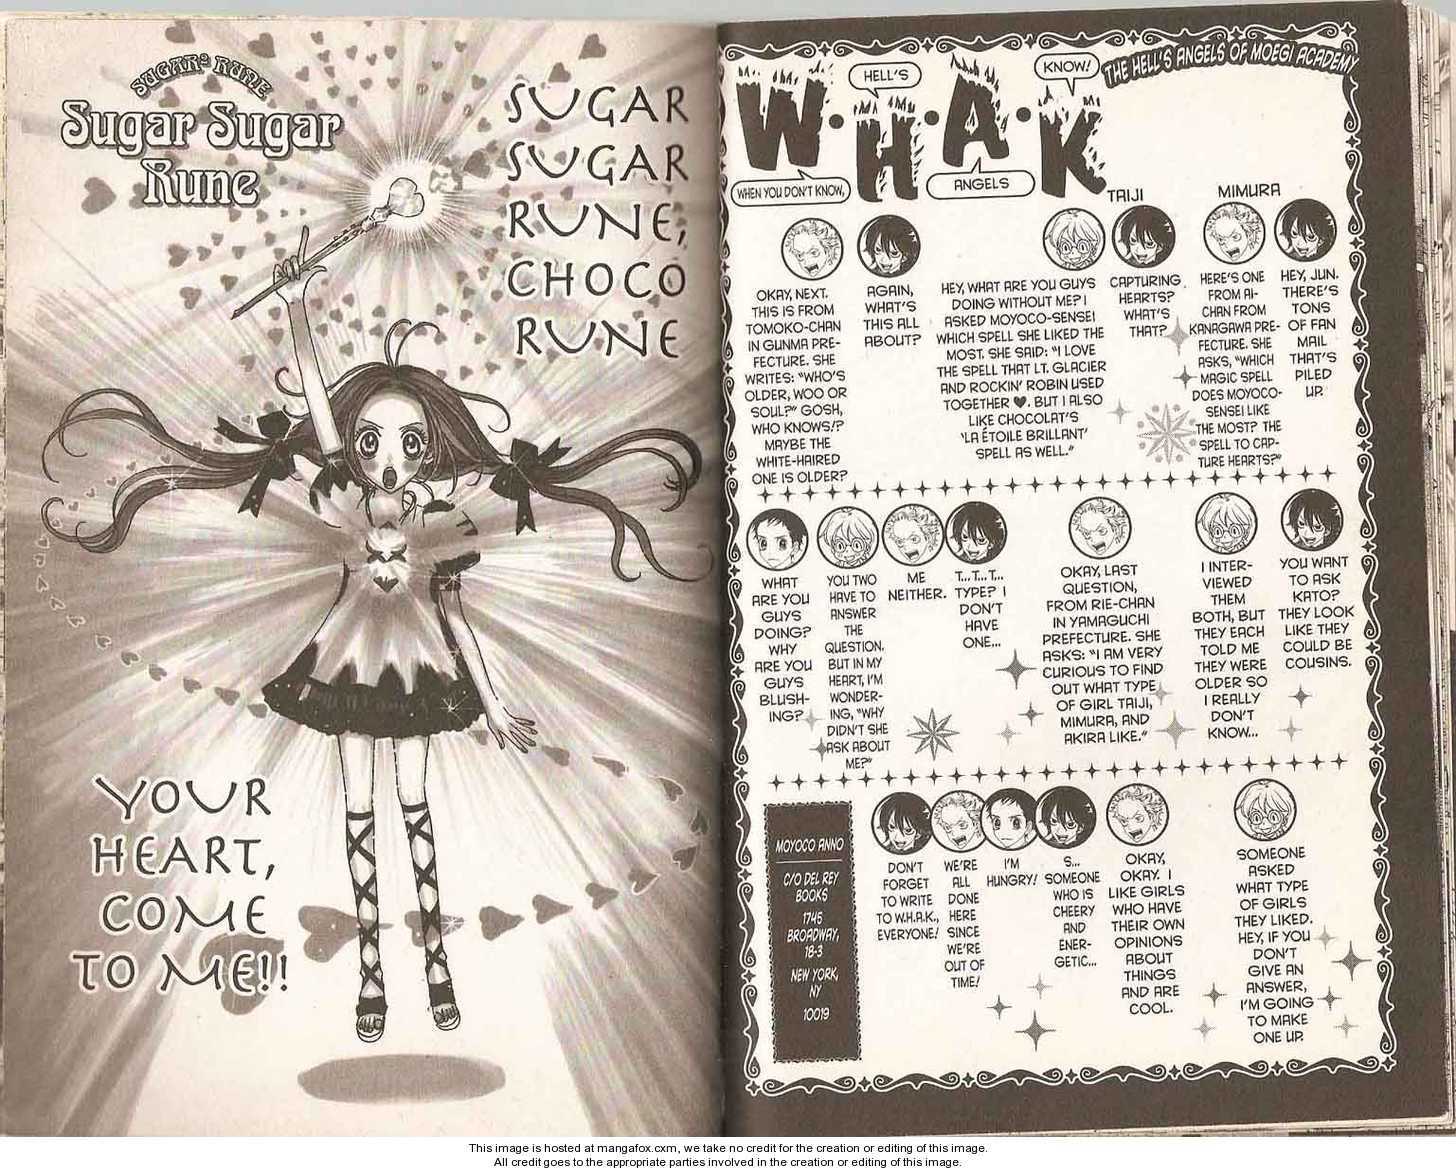 SUGAR² RUNE
Sugar Sugar
Rune
SUGAR
SUGAR
RUNE,
CHOCO
RUNE
YOUR
HEART,
COME
TO ME!!
THE HELL'S ANGELS OF MOEGI ACADEMY
W·H·A·K
WHEN YOU DON'T KNOW,
HELL'S
ANGELS
KNOW!
MIMURA
TAIJI
HEY, JUN.
THERE'S
TONS
OF FAN
MAIL
THAT'S
PILED
UP.
HERE'S ONE
FROM AI-
CHAN FROM
KANAGAWA PRE-
FECTURE. SHE
ASKS, "WHICH
MAGIC SPELL
DOES MOYOCO-
SENSEI LIKE
THE MOST? THE
SPELL TO CAP-
TURE HEARTS?"
CAPTURING
HEARTS?
WHAT'S
THAT?
HEY, WHAT ARE YOU GUYS
DOING WITHOUT ME? I
ASKED MOYOCO-SENSEI
WHICH SPELL SHE LIKED THE
MOST. SHE SAID: "I LOVE
THE SPELL THAT LT. GLACIER
AND ROCKIN' ROBIN USED
TOGETHER ♥. BUT I ALSO
LIKE CHOCOLAT'S
'LA ÉTOILE BRILLANT'
SPELL AS WELL."
AGAIN,
WHAT'S
THIS ALL
ABOUT?
OKAY, NEXT.
THIS IS FROM
TOMOKO-CHAN
IN GUNMA PRE-
FECTURE. SHE
WRITES: "WHO'S
OLDER, WOO OR
SOUL?" GOSH,
WHO KNOWS!?
MAYBE THE
WHITE-HAIRED
ONE IS OLDER?
YOU WANT
TO ASK
KATO?
THEY LOOK
LIKE THEY
COULD BE
COUSINS.
I INTER-
VIEWED
THEM
BOTH, BUT
THEY EACH
TOLD ME
THEY WERE
OLDER SO
I REALLY
DON'T
KNOW...
OKAY, LAST
QUESTION,
FROM RIE-CHAN
IN YAMAGUCHI
PREFECTURE. SHE
ASKS: "I AM VERY
CURIOUS TO FIND
OUT WHAT TYPE
OF GIRL TAIJI,
MIMURA, AND
AKIRA LIKE."
T... T... T...
TYPE? I
DON'T
HAVE
ONE...
ME
NEITHER.
YOU TWO
HAVE TO
ANSWER
THE
QUESTION.
BUT IN MY
HEART, I'M
WONDER-
ING, "WHY
DIDN'T SHE
ASK ABOUT
ME?"
WHAT
ARE YOU
GUYS
DOING?
WHY
ARE YOU
GUYS
BLUSH-
ING?
SOMEONE
ASKED
WHAT TYPE
OF GIRLS
THEY LIKED.
HEY, IF YOU
DON'T
GIVE AN
ANSWER,
I'M GOING
TO MAKE
ONE UP.
OKAY,
OKAY. I
LIKE GIRLS
WHO HAVE
THEIR OWN
OPINIONS
ABOUT
THINGS
AND ARE
COOL.
S...
SOMEONE
WHO IS
CHEERY
AND
ENER-
GETIC...
I'M
HUNGRY!
WE'RE
ALL
DONE
HERE
SINCE
WE'RE
OUT OF
TIME!
DON'T
FORGET
TO WRITE
TO W.H.A.K.,
EVERYONE!
MOYOCO ANNO
C/O DEL REY
BOOKS
1745
BROADWAY,
18-3
NEW YORK,
NY
10019
This image is hosted at mangafox.cxm, we take no credit for the creation or editing of this image.
All credit goes to the appropriate parties involved in the creation or editing of this image.